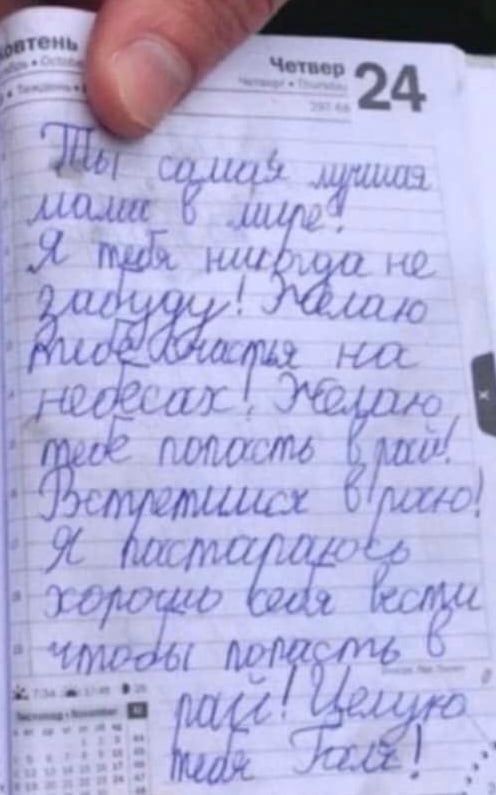 овтень
Четвер 24
Четверг • Thursday
297-68
Ты самая лучшая
мама в мире!
Я тебя никогда не
забуду! Желаю
тебе счастья на
небесах! Желаю
тебе попасть в рай!
Встретимся в раю!
Я пастараюсь
хорошо себя вести
чтобы попасть в
рай! Целую
тебя Галя!
Листопад • November